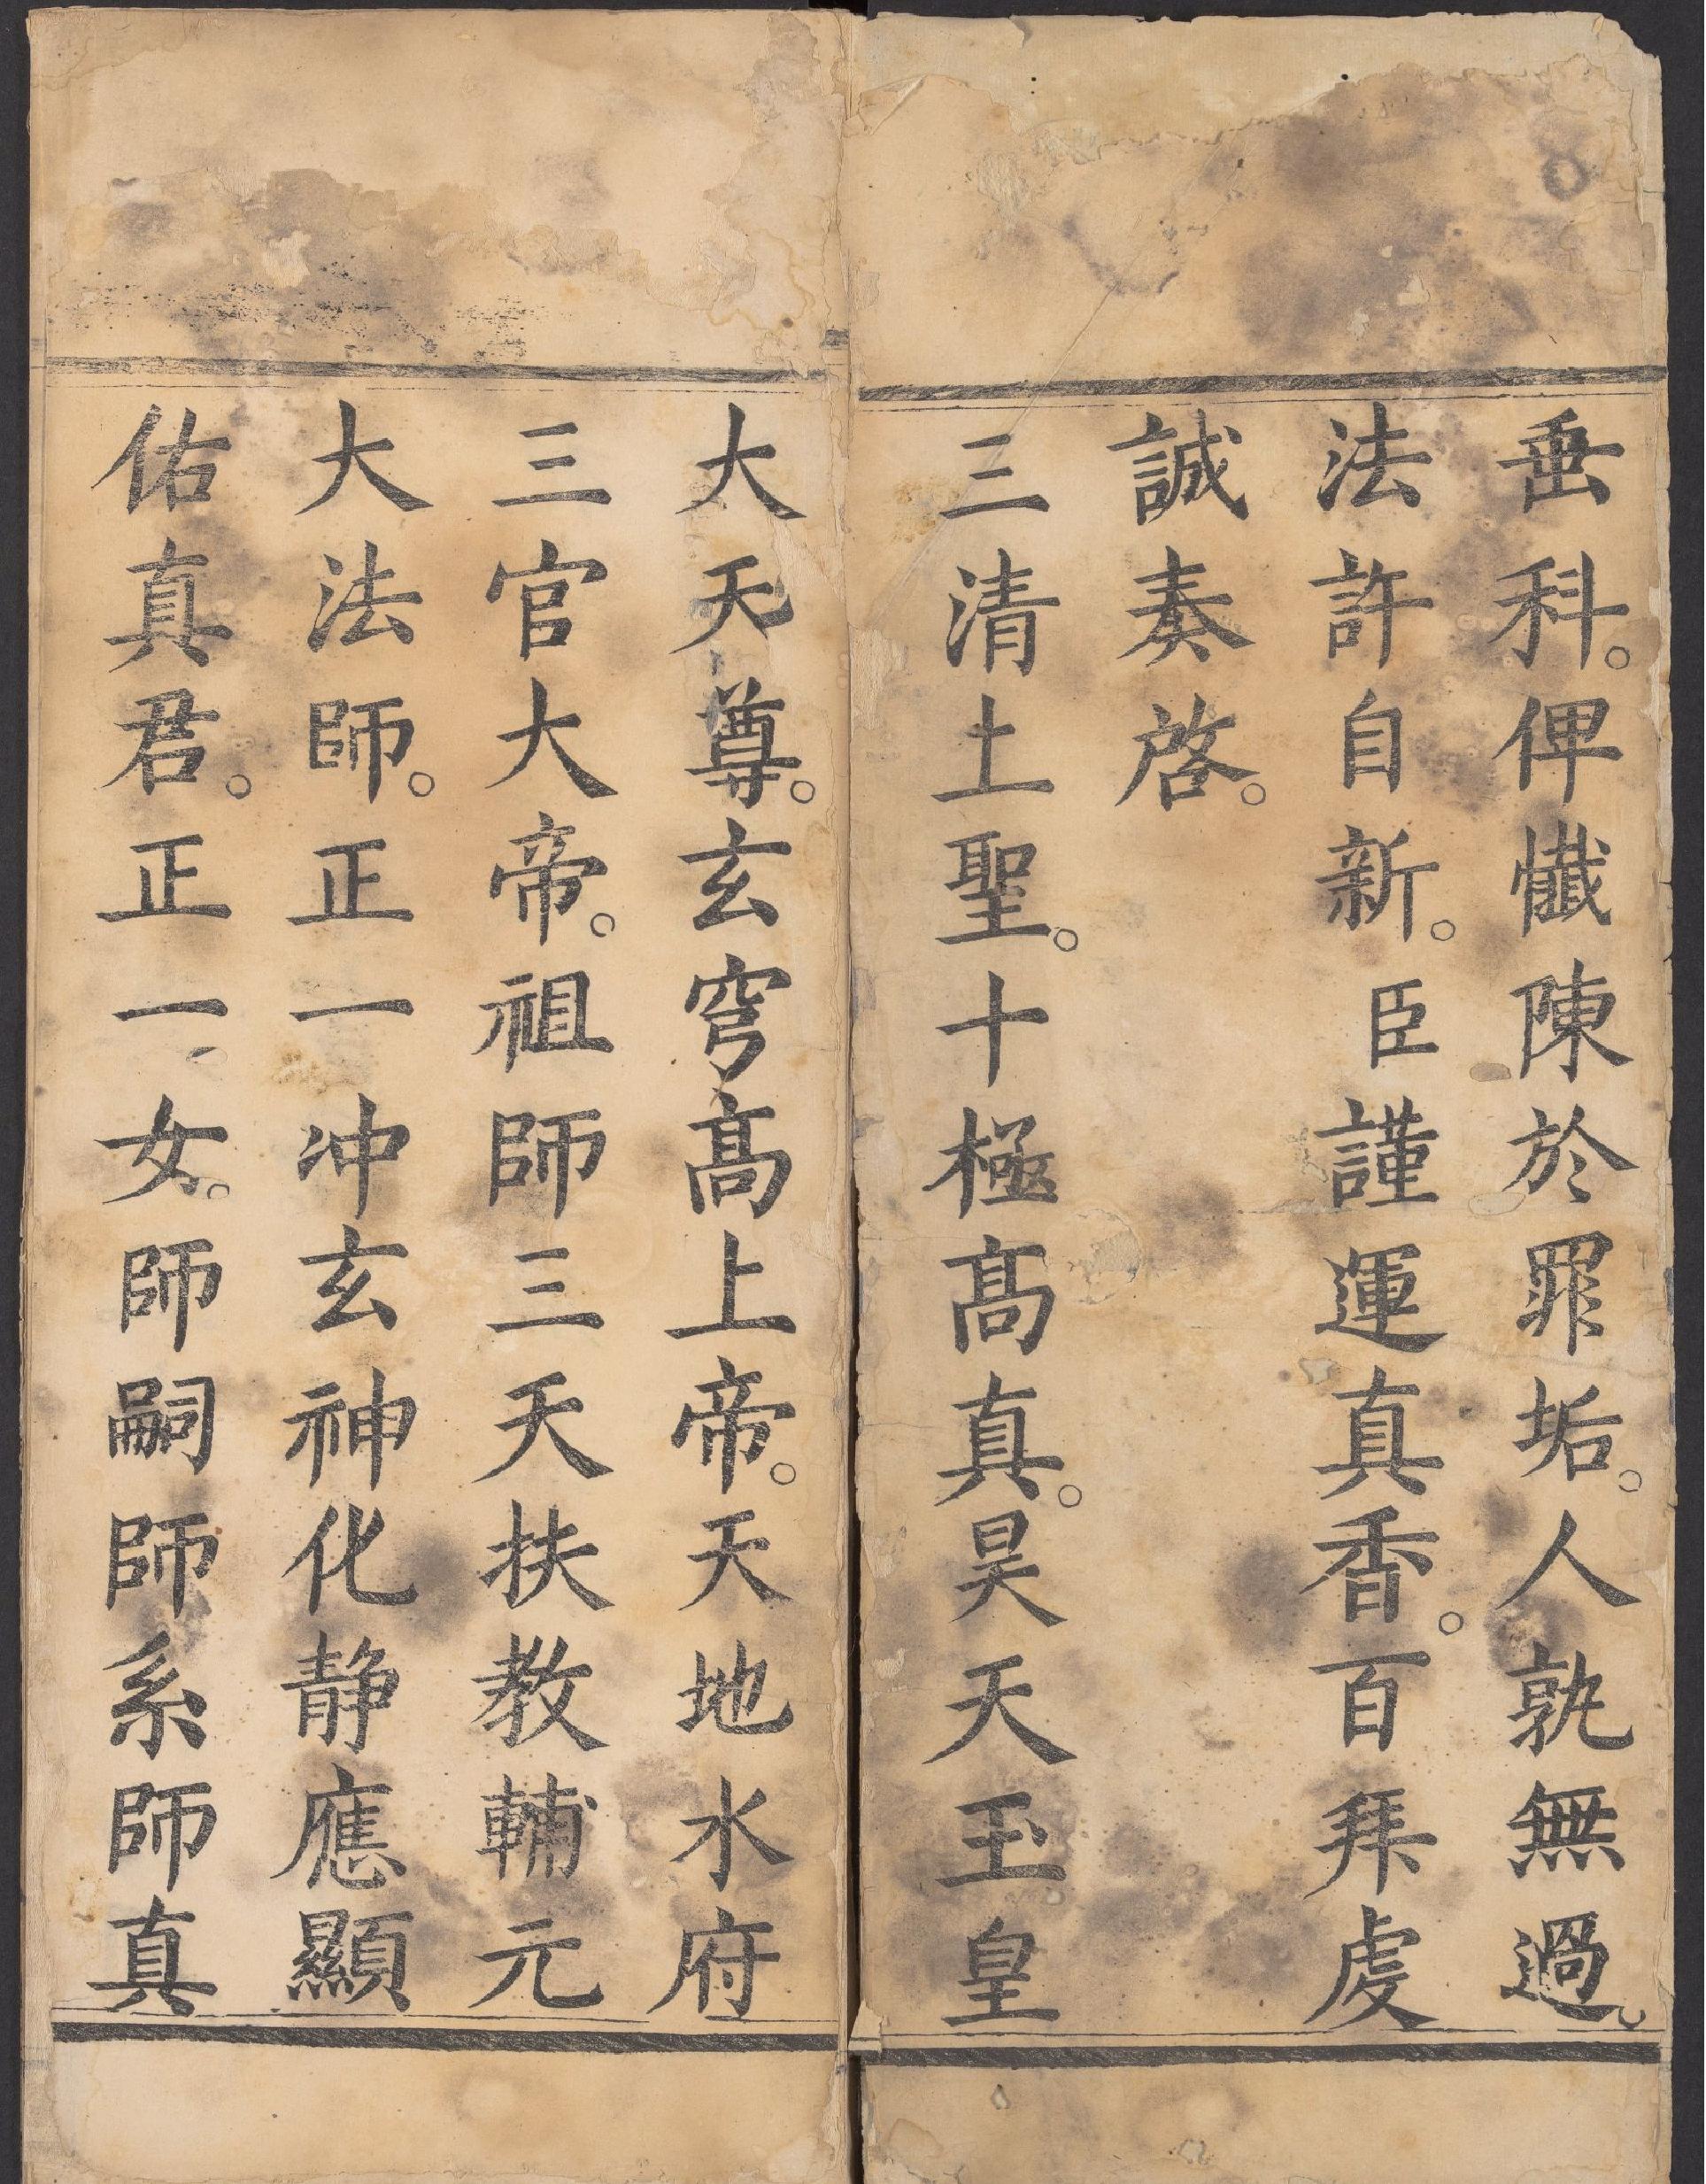 垂科。俾懴陳於罪垢。人孰無過。
法許自新。臣謹運真香。百拜虔
誠奏啓。
三清土聖。十極髙真。昊天玉皇
大天尊。玄穹髙上帝。天地水府
三官大帝。祖師三天扶教輔元
大法師。正一冲玄神化静應顯
佑真君。正一女。師嗣師系師真